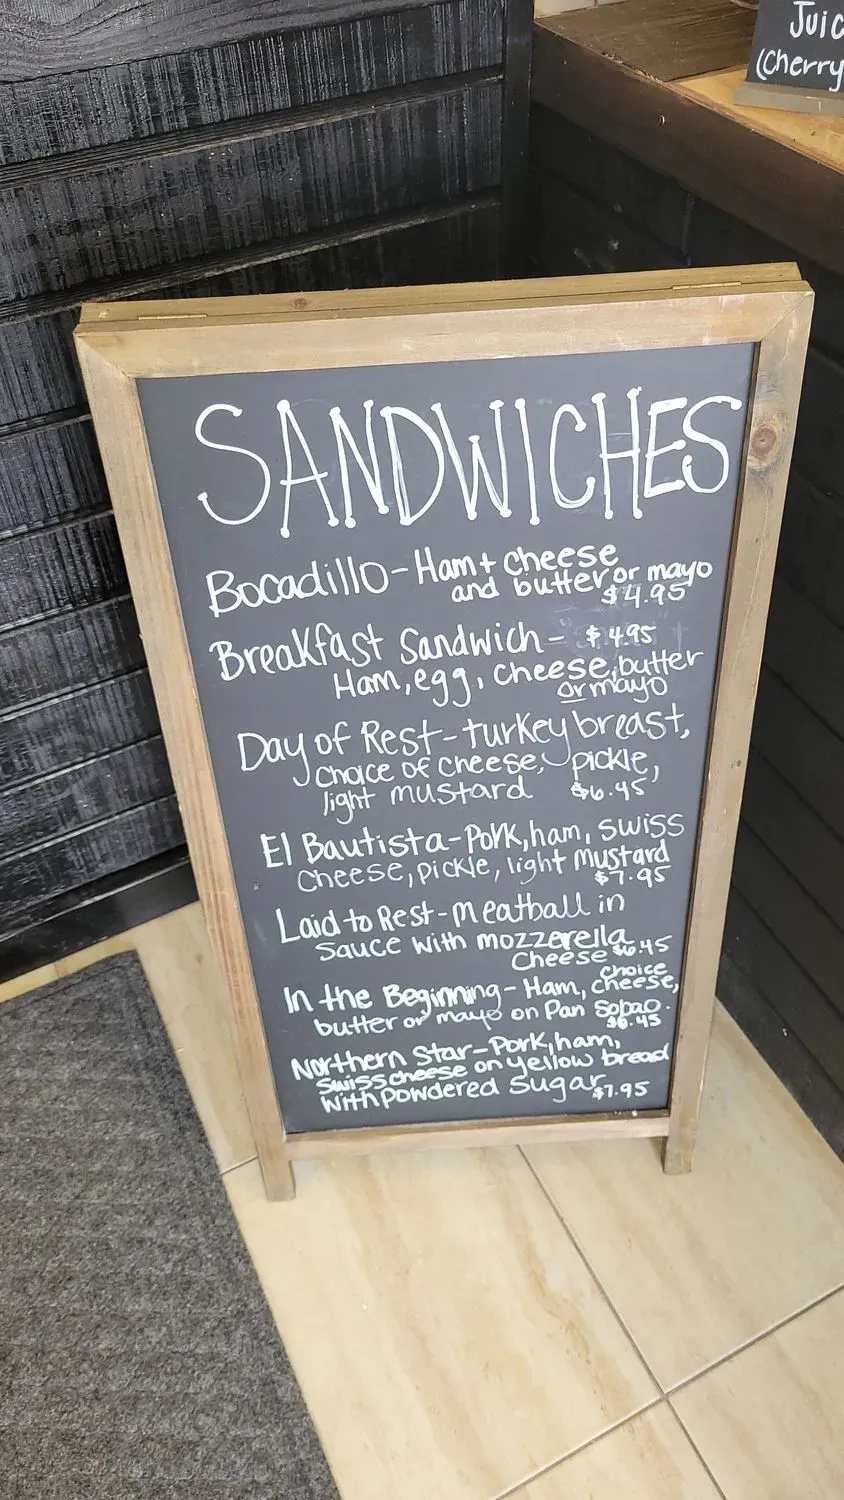 Juic
(Cherry
SANDWICHES
Bocadillo - Ham + cheese
and butter or mayo
$4.95
Breakfast Sandwich - $4.95
Ham, egg, cheese, butter
or mayo
Day of Rest - turkey breast,
choice of cheese, pickle,
light mustard $6.45
El Bautista - Pork, ham, swiss
cheese, pickle, light mustard
$7.95
Laid to Rest - Meatball in
sauce with mozzerella
Cheese $6.45
In the Beginning - Ham, choice cheese,
butter or mayo on Pan Sobao.
$6.45
Northern Star - Pork, ham,
swiss cheese on yellow bread
with powdered sugar $7.95